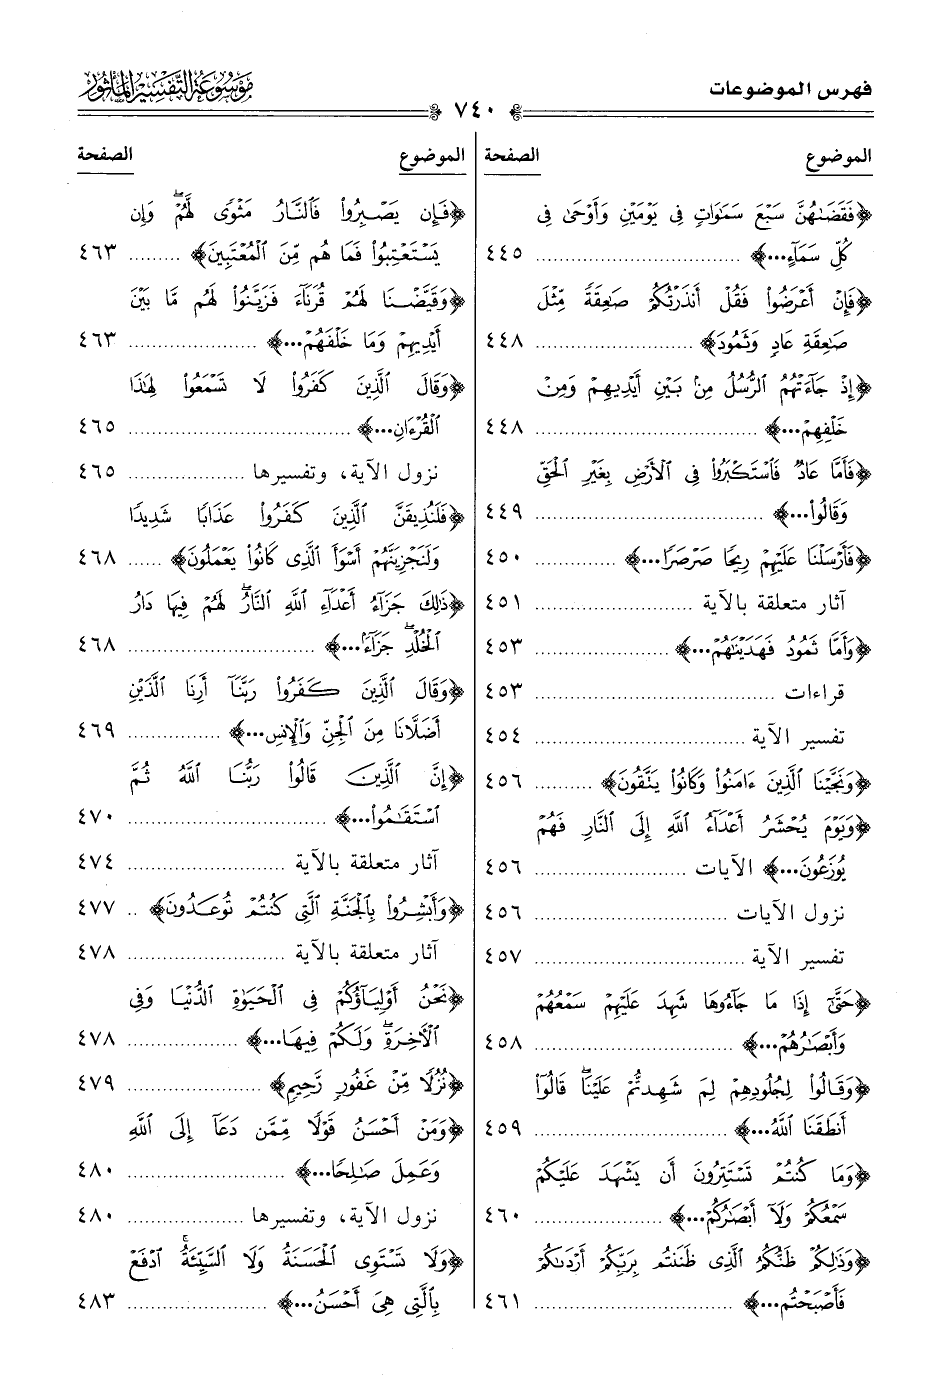 فهرس الموضوعات
موسوعة التفسير المأثور
٧٤٠
الموضوع الصفحة
﴿فَقَضَىٰهُنَّ سَبْعَ سَمَٰوَاتٍ فِي يَوْمَيْنِ وَأَوْحَىٰ فِي
كُلِّ سَمَآءٍ...﴾ ٤٤٥
﴿فَإِنْ أَعْرَضُوا۟ فَقُلْ أَنذَرْتُكُمْ صَٰعِقَةً مِّثْلَ
صَٰعِقَةِ عَادٍ وَثَمُودَ﴾ ٤٤٨
﴿إِذْ جَآءَتْهُمُ ٱلرُّسُلُ مِنۢ بَيْنِ أَيْدِيهِمْ وَمِنْ
خَلْفِهِمْ...﴾ ٤٤٨
﴿فَأَمَّا عَادٌ فَٱسْتَكْبَرُوا۟ فِي ٱلْأَرْضِ بِغَيْرِ ٱلْحَقِّ
وَقَالُوا۟...﴾ ٤٤٩
﴿فَأَرْسَلْنَا عَلَيْهِمْ رِيحًا صَرْصَرًا...﴾ ٤٥٠
آثار متعلقة بالآية ٤٥١
﴿وَأَمَّا ثَمُودُ فَهَدَيْنَٰهُمْ...﴾ ٤٥٣
قراءات ٤٥٣
تفسير الآية ٤٥٤
﴿وَنَجَّيْنَا ٱلَّذِينَ ءَامَنُوا۟ وَكَانُوا۟ يَتَّقُونَ﴾ ٤٥٦
﴿وَيَوْمَ يُحْشَرُ أَعْدَآءُ ٱللَّهِ إِلَى ٱلنَّارِ فَهُمْ
يُوزَعُونَ...﴾ الآيات ٤٥٦
نزول الآيات ٤٥٦
تفسير الآية ٤٥٧
﴿حَتَّىٰٓ إِذَا مَا جَآءُوهَا شَهِدَ عَلَيْهِمْ سَمْعُهُمْ
وَأَبْصَٰرُهُمْ...﴾ ٤٥٨
﴿وَقَالُوا۟ لِجُلُودِهِمْ لِمَ شَهِدتُّمْ عَلَيْنَا ۖ قَالُوٓا۟
أَنطَقَنَا ٱللَّهُ...﴾ ٤٥٩
﴿وَمَا كُنتُمْ تَسْتَتِرُونَ أَن يَشْهَدَ عَلَيْكُمْ
سَمْعُكُمْ وَلَآ أَبْصَٰرُكُمْ...﴾ ٤٦٠
﴿وَذَٰلِكُمْ ظَنُّكُمُ ٱلَّذِي ظَنَنتُم بِرَبِّكُمْ أَرْدَىٰكُمْ
فَأَصْبَحْتُم...﴾ ٤٦١
الموضوع الصفحة
﴿فَإِن يَصْبِرُوا۟ فَٱلنَّارُ مَثْوًى لَّهُمْ ۖ وَإِن
يَسْتَعْتِبُوا۟ فَمَا هُم مِّنَ ٱلْمُعْتَبِينَ﴾ ٤٦٣
﴿وَقَيَّضْنَا لَهُمْ قُرَنَآءَ فَزَيَّنُوا۟ لَهُم مَّا بَيْنَ
أَيْدِيهِمْ وَمَا خَلْفَهُمْ...﴾ ٤٦٣
﴿وَقَالَ ٱلَّذِينَ كَفَرُوا۟ لَا تَسْمَعُوا۟ لِهَٰذَا
ٱلْقُرْءَانِ...﴾ ٤٦٥
نزول الآية، وتفسيرها ٤٦٥
﴿فَلَنُذِيقَنَّ ٱلَّذِينَ كَفَرُوا۟ عَذَابًا شَدِيدًا
وَلَنَجْزِيَنَّهُمْ أَسْوَأَ ٱلَّذِي كَانُوا۟ يَعْمَلُونَ﴾ ٤٦٨
﴿ذَٰلِكَ جَزَآءُ أَعْدَآءِ ٱللَّهِ ٱلنَّارُ ۖ لَهُمْ فِيهَا دَارُ
ٱلْخُلْدِ ۖ جَزَآءًۢ...﴾ ٤٦٨
﴿وَقَالَ ٱلَّذِينَ كَفَرُوا۟ رَبَّنَآ أَرِنَا ٱلَّذَيْنِ
أَضَلَّانَا مِنَ ٱلْجِنِّ وَٱلْإِنسِ...﴾ ٤٦٩
﴿إِنَّ ٱلَّذِينَ قَالُوا۟ رَبُّنَا ٱللَّهُ ثُمَّ
ٱسْتَقَٰمُوا۟...﴾ ٤٧٠
آثار متعلقة بالآية ٤٧٤
﴿وَأَبْشِرُوا۟ بِٱلْجَنَّةِ ٱلَّتِي كُنتُمْ تُوعَدُونَ﴾ ٤٧٧
آثار متعلقة بالآية ٤٧٨
﴿نَحْنُ أَوْلِيَآؤُكُمْ فِي ٱلْحَيَوٰةِ ٱلدُّنْيَا وَفِي
ٱلْأَخِرَةِ ۖ وَلَكُمْ فِيهَا...﴾ ٤٧٨
﴿نُزُلًا مِّنْ غَفُورٍ رَّحِيمٍ﴾ ٤٧٩
﴿وَمَنْ أَحْسَنُ قَوْلًا مِّمَّن دَعَآ إِلَى ٱللَّهِ
وَعَمِلَ صَٰلِحًا...﴾ ٤٨٠
نزول الآية، وتفسيرها ٤٨٠
﴿وَلَا تَسْتَوِي ٱلْحَسَنَةُ وَلَا ٱلسَّيِّئَةُ ۚ ٱدْفَعْ
بِٱلَّتِي هِيَ أَحْسَنُ...﴾ ٤٨٣